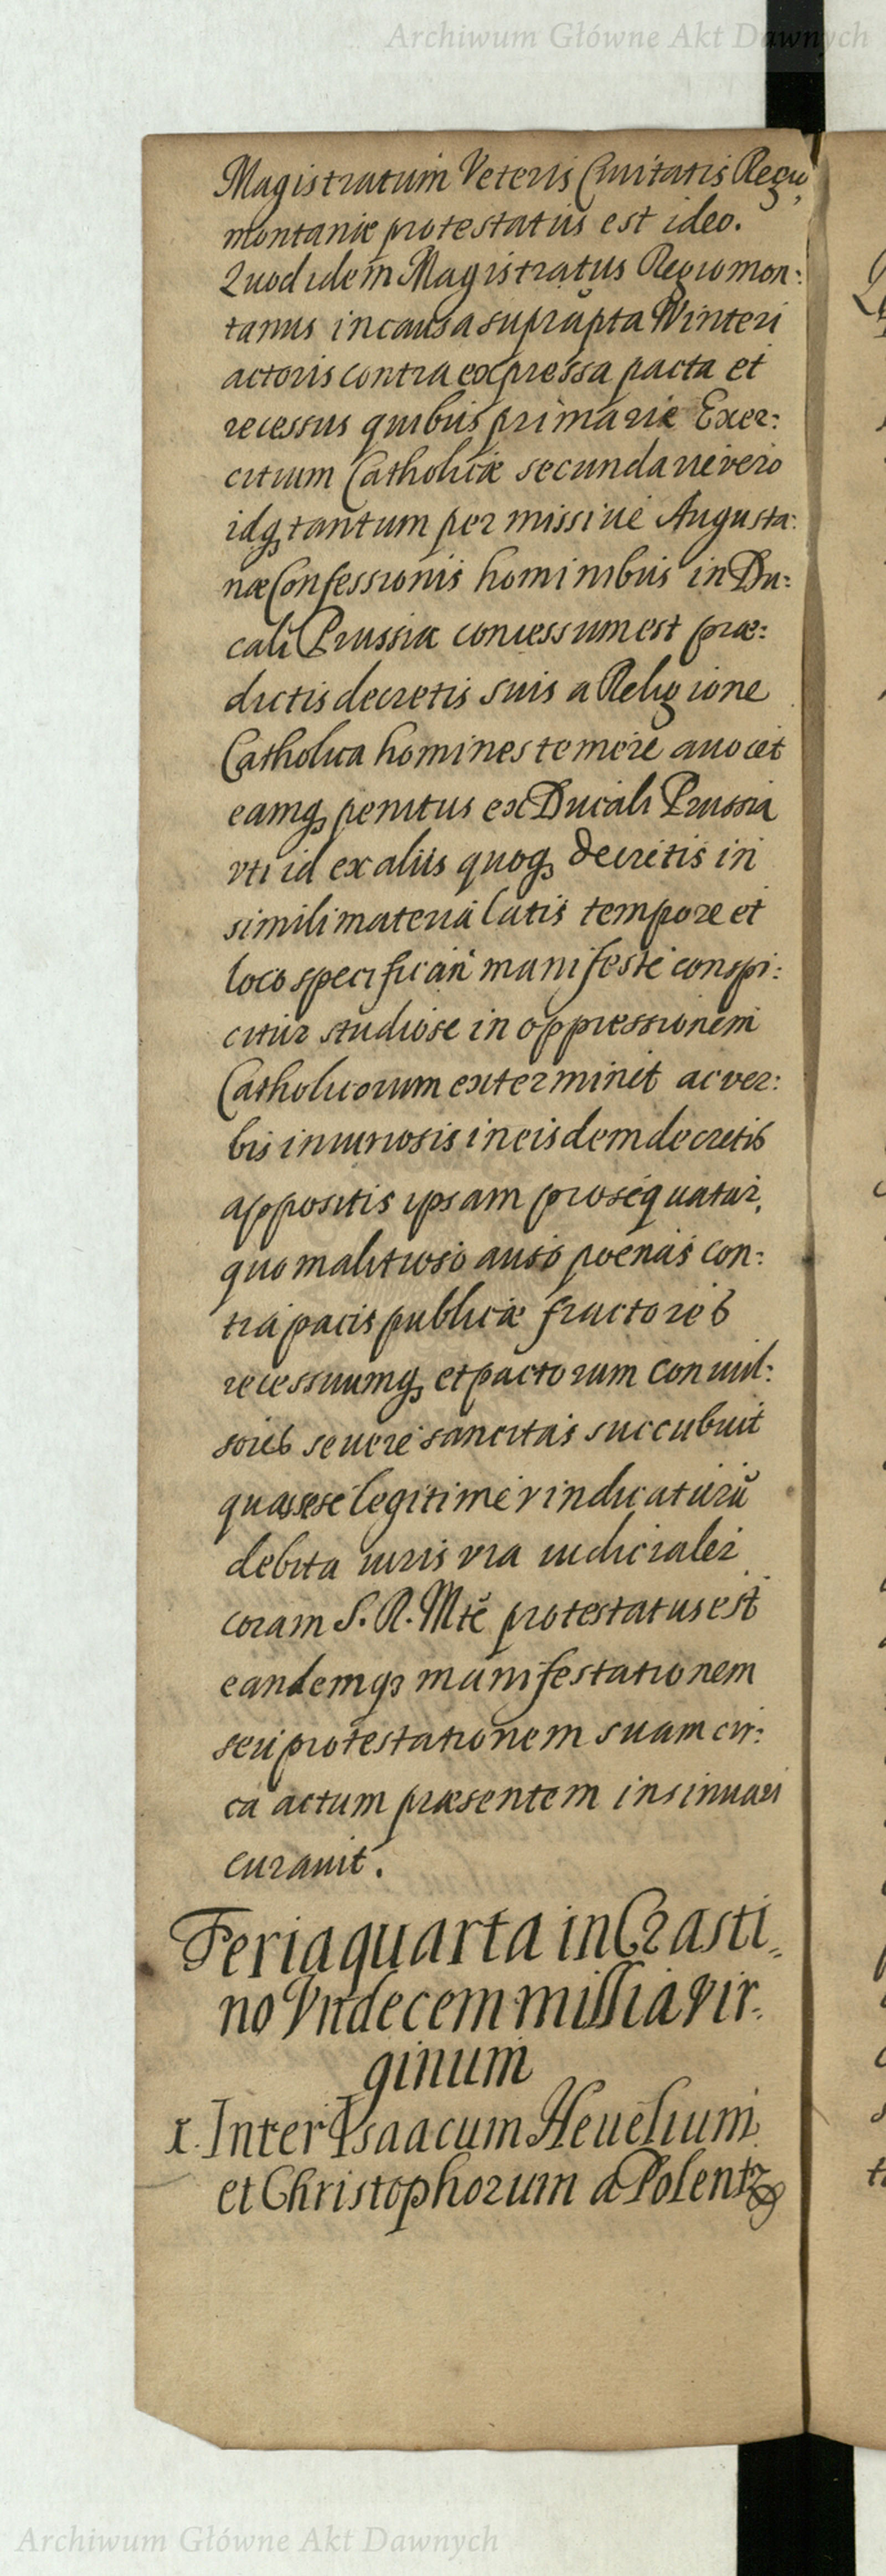 Archiwum Główne Akt Dawnych
Magistratum Veteris Civitatis Regio,
montanæ protestatus est ideo.
Quod idem Magistratus Regiomon:
tanus in causa suprapta Winteri
actoris contra expressa pacta et
recessus quibus primarie Exer:
citium Catholicæ secundarie vero
idq tantum permissiue Augusta:
næ Confessionis hominibus in Du:
cali Prussia concessum est præ:
dictis decretis suis a Religione
Catholica homines temere auocet
eamq penitus ex Ducali Prussia
vti id ex aliis quoq decretis in
simili materia latis tempore et
loco specifican manifeste conspi:
citur studiose in oppressionem
Catholicorum exterminet ac ver:
bis iniuriosis in eisdem decretis
appositis ipsam prosequatur,
quo malitioso auso poenas con:
tra pacis publicæ fractores
recessuumq et pactorum conuul:
sores seuere sancitas succubuit
quas sese legitime vindicaturū
debita iuris via iudicialer
coram S. R. Mte protestatus est
eandemq manifestationem
seu protestationem suam cir:
ca actum præsentem insinuari
curauit.
Feria quarta in Crasti,
no Vndecem millia vir,
ginum
1. Inter Isaacum Heuelium
et Christophorum a Polentz
Archiwum Główne Akt Dawnych